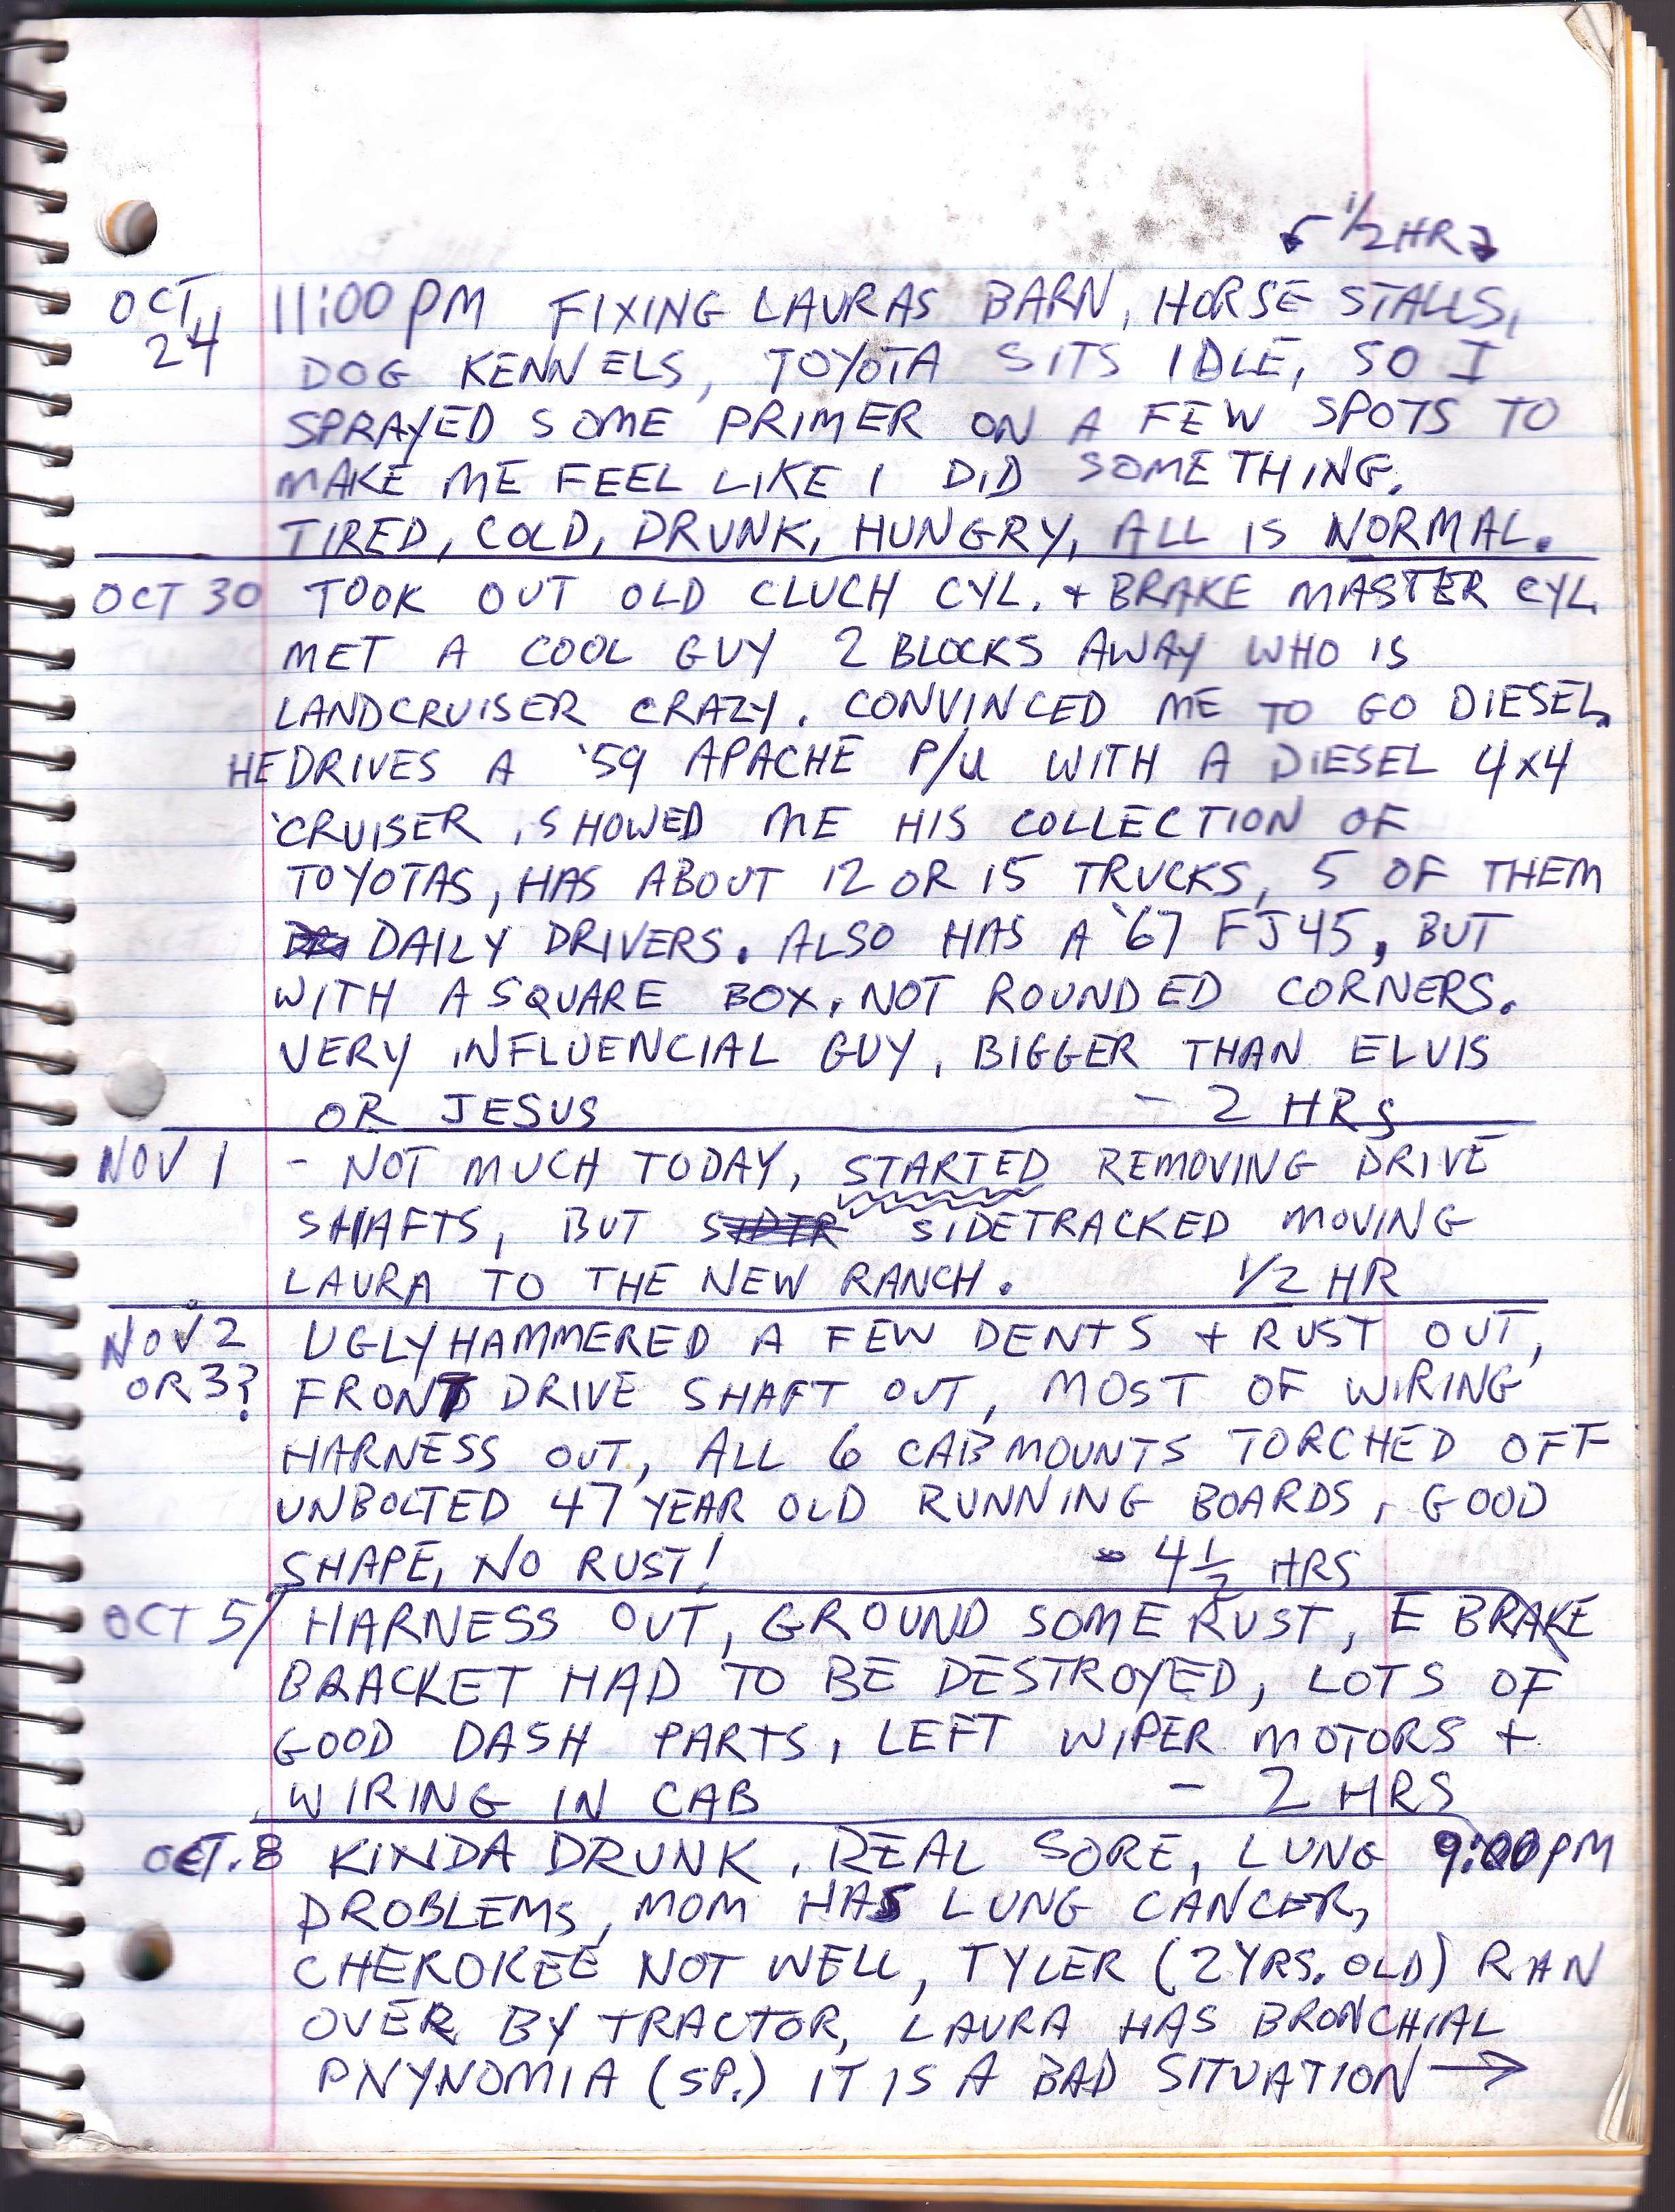 ↙ 1/2 HR ↘
OCT 24 11:00 PM FIXING LAURAS BARN, HORSE STALLS,
DOG KENNELS, TOYOTA SITS IDLE, SO I
SPRAYED SOME PRIMER ON A FEW SPOTS TO
MAKE ME FEEL LIKE I DID SOMETHING.
TIRED, COLD, DRUNK, HUNGRY, ALL IS NORMAL.
OCT 30 TOOK OUT OLD CLUCH CYL. + BRAKE MASTER CYL.
MET A COOL GUY 2 BLOCKS AWAY WHO IS
LANDCRUISER CRAZY. CONVINCED ME TO GO DIESEL.
HE DRIVES A '59 APACHE P/U WITH A DIESEL 4x4
'CRUISER, SHOWED ME HIS COLLECTION OF
TOYOTAS, HAS ABOUT 12 OR 15 TRUCKS, 5 OF THEM
DAILY DRIVERS. ALSO HAS A '67 FJ45, BUT
WITH A SQUARE BOX, NOT ROUNDED CORNERS.
VERY INFLUENCIAL GUY, BIGGER THAN ELVIS
OR JESUS - 2 HRS
NOV 1 - NOT MUCH TODAY, STARTED REMOVING DRIVE
SHAFTS, BUT SIDTR SIDETRACKED MOVING
LAURA TO THE NEW RANCH. 1/2 HR
NOV 2 OR 3? UGLYHAMMERED A FEW DENTS + RUST OUT,
FRONT DRIVE SHAFT OUT, MOST OF WIRING
HARNESS OUT, ALL 6 CAB MOUNTS TORCHED OFF
UNBOLTED 47 YEAR OLD RUNNING BOARDS, GOOD
SHAPE, NO RUST! - 4 1/2 HRS
OCT 5/ HARNESS OUT, GROUND SOME RUST, E BRAKE
BRACKET HAD TO BE DESTROYED, LOTS OF
GOOD DASH PARTS, LEFT WIPER MOTORS +
WIRING IN CAB - 2 HRS
OCT. 8 KINDA DRUNK, REAL SORE, LUNG 9:00PM
PROBLEMS, MOM HAS LUNG CANCER,
CHEROKEE NOT WELL, TYLER (2YRS. OLD) RAN
OVER BY TRACTOR, LAURA HAS BRONCHIAL
PNYNOMIA (SP.) IT IS A BAD SITUATION →